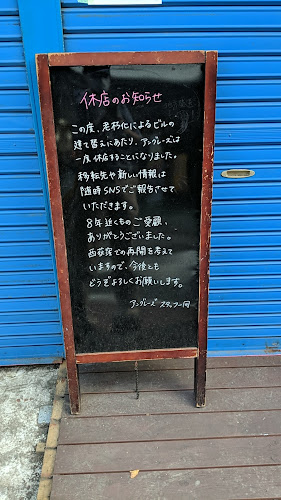 休店のお知らせ
この度、老朽化によるビルの
建て替えにあたり、アングレーズは
一度休店することになりました。
移転先や新しい情報は
随時SNSでご報告させて
いただきます。
8年近くものご愛顧、
ありがとうございました。
西荻窪での再開を考えて
いますので、今後とも
どうぞよろしくお願いします。
アングレーズ スタッフ一同